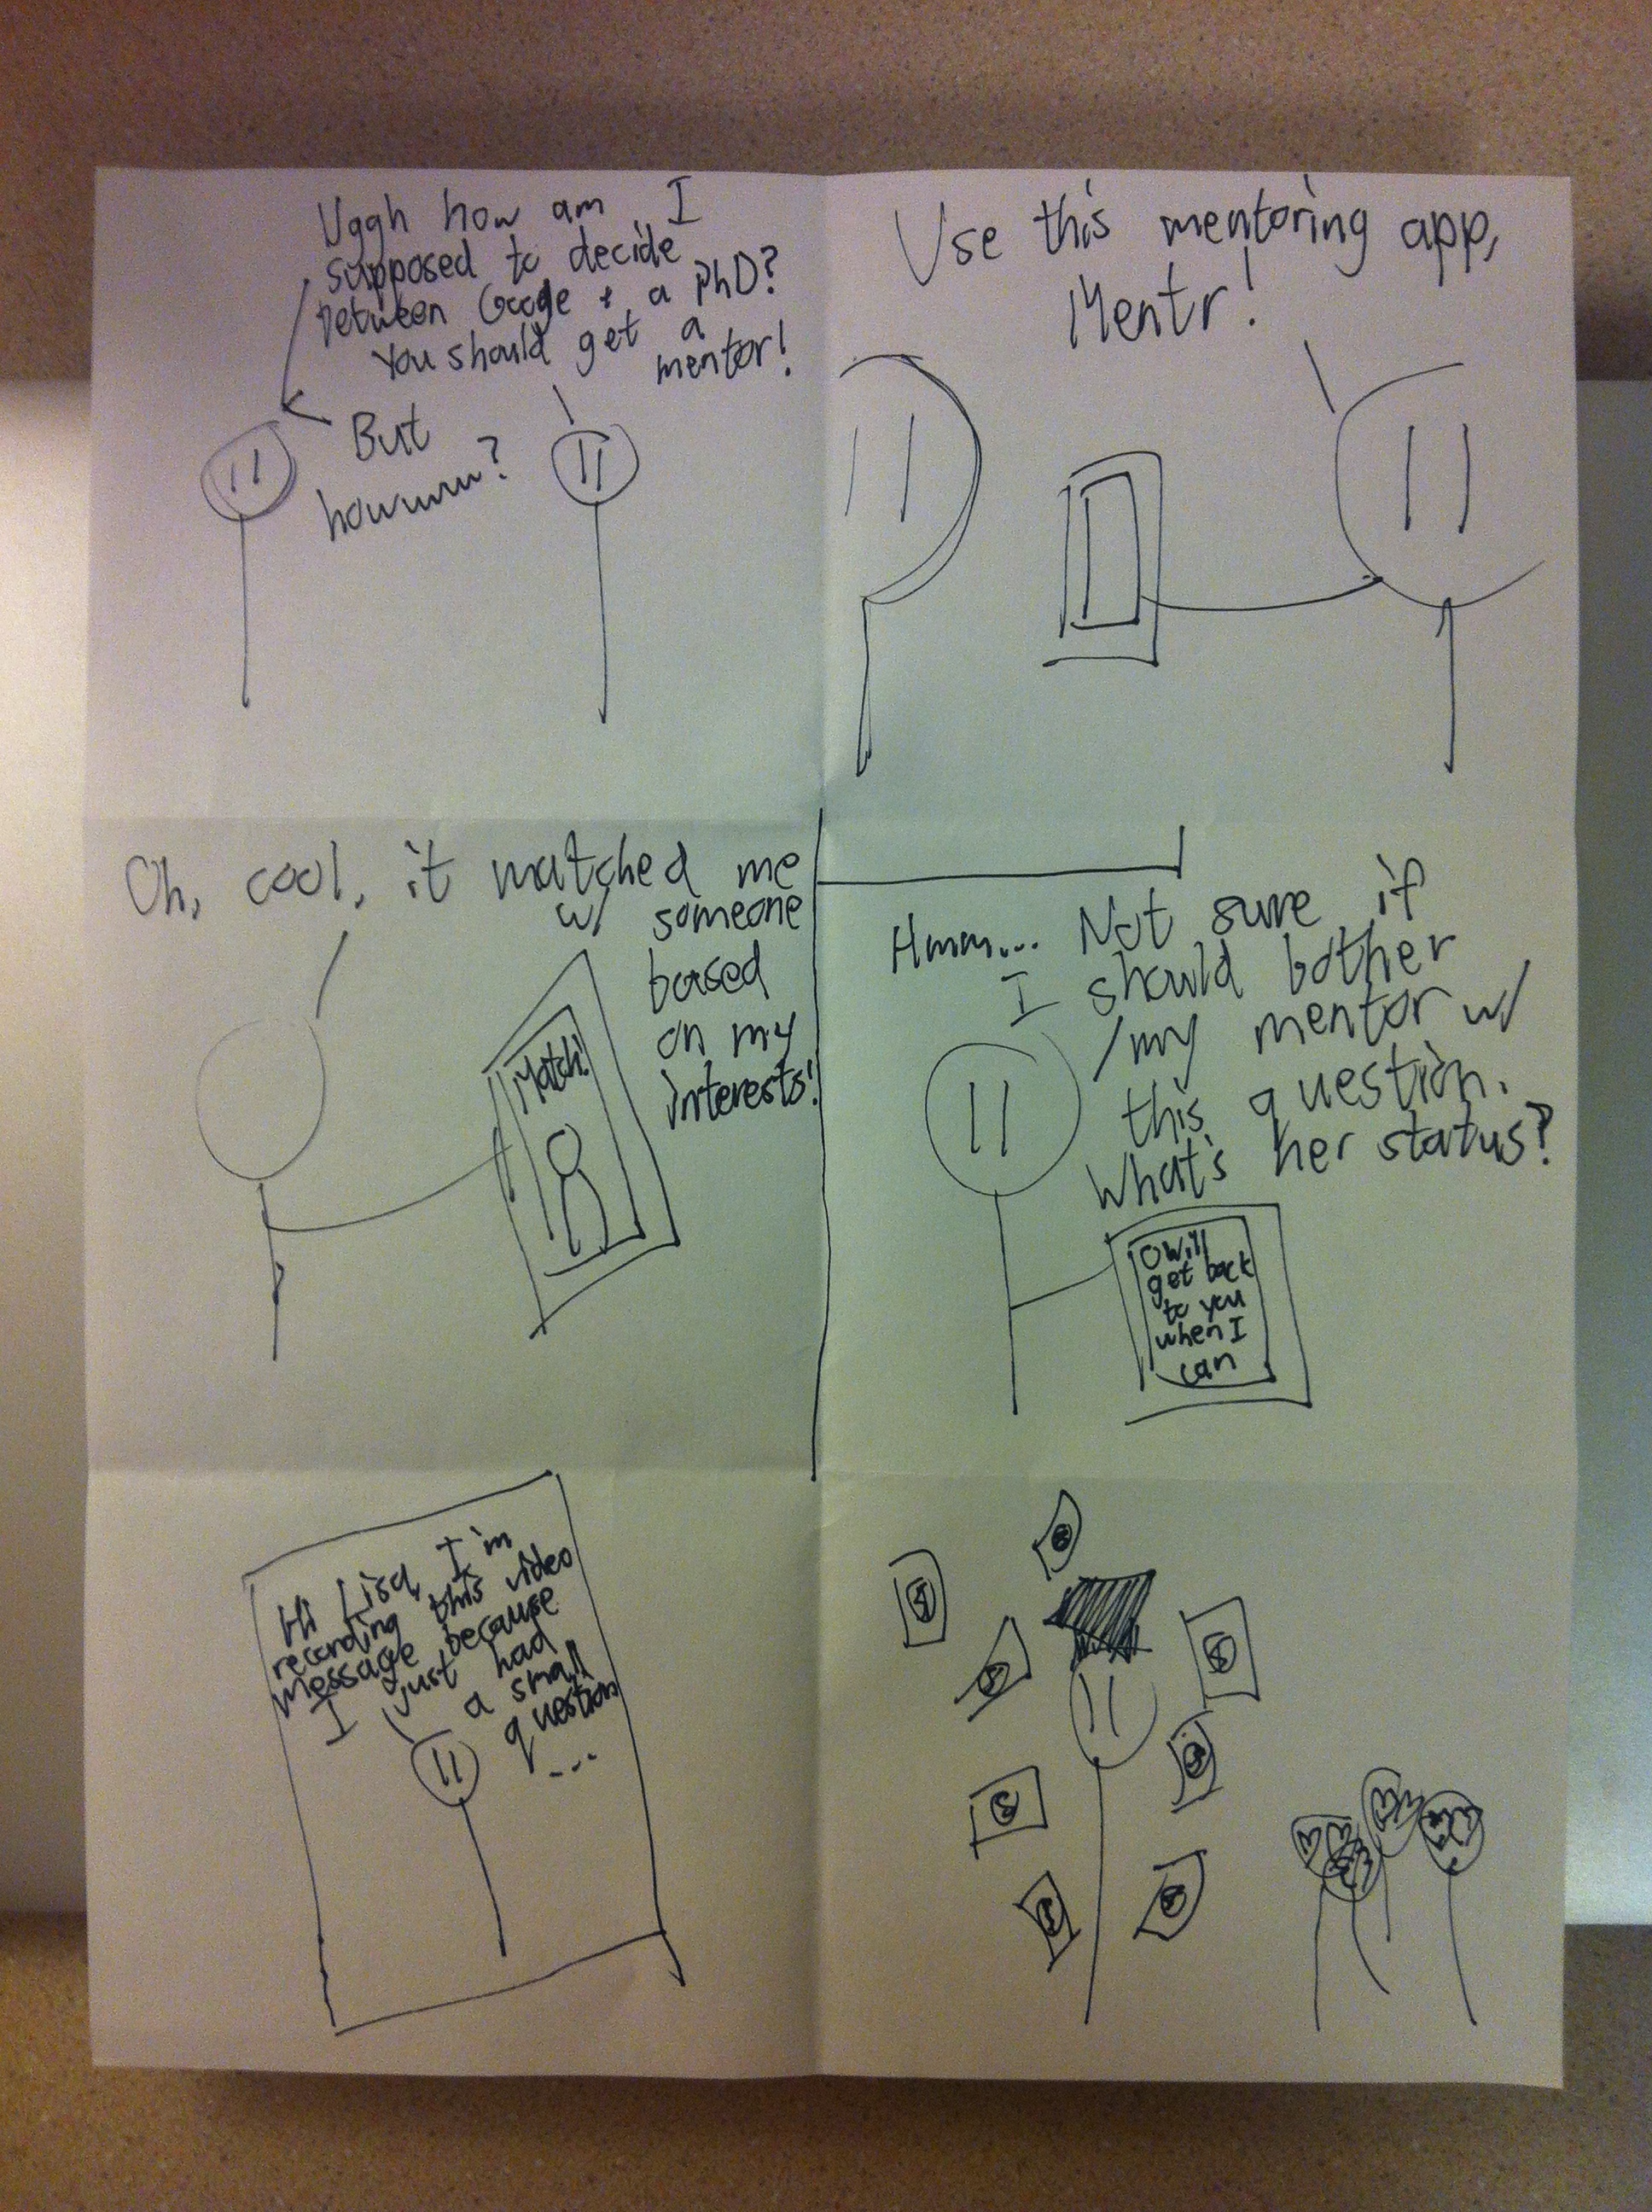 Uggh how am I
supposed to decide
between Google + a PhD?
You should get a
mentor!
But
howwww?
Use this mentoring app,
Mentr!
Oh, cool, it matched me
w/ someone
based
on my
interests!
Match!
Hmm... Not sure if
I should bother
my mentor w/
this question.
What's her status?
O Will
get back
to you
when I
can
Hi Lisa, I'm
recording this video
message because
I just had
a small
question
...
$
$
$
$
$
$
$
$